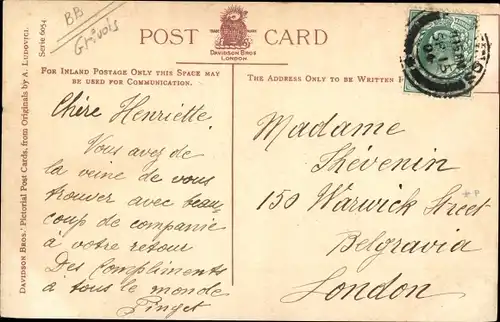 BB
Grivois
POST CARD
DAVIDSON BROS
LONDON
FOR INLAND POSTAGE ONLY THIS SPACE MAY
BE USED FOR COMMUNICATION.
THE ADDRESS ONLY TO BE WRITTEN
DAVIDSON BROS.' PICTORIAL POST CARDS, FROM ORIGINALS BY A. LUDOVICI. SERIE 6054
Chère Henriette
Vous avez de
la veine de vous
trouver avec beau-
coup de companie
à votre retour
Des Compliments
à tous le monde
Pinget
Madame
Thévenin
150 Warwick Street
Belgravia
London